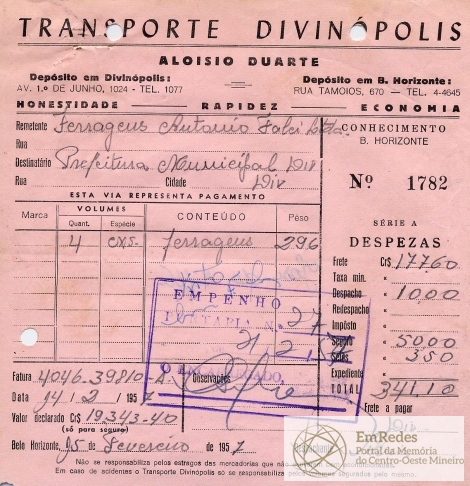 TRANSPORTE DIVINÓPOLIS
ALOISIO DUARTE
Depósito em Divinópolis:
AV. 1.º DE JUNHO, 1024 - TEL. 1077
Depósito em B. Horizonte:
RUA TAMOIOS, 670 — TEL. 4-4645
HONESTIDADE — RAPIDEZ — ECONOMIA
Remetente Ferragens Antonio Falci Ltda.
Rua
Destinatário Prefeitura Municipal
Rua Cidade Div
CONHECIMENTO
B. HORIZONTE
Nº 1782
ESTA VIA REPRESENTA PAGAMENTO
Marca VOLUMES CONTEÚDO Pêso
Quant. Espécie
4 cxs. ferragens 296
SÉRIE A
DESPEZAS
Frete Cr$ 177,60
Taxa min.
Despacho 10,00
Redespacho
Impôsto
Seguro 50,00
3,50
Expediente
TOTAL 341,10
Frete a pagar
EMPENHO
N. 27
21 2
Fatura 4046.39810
Observações
Data 14/2/1957
Valor declarado Cr$ 19343.40
(só para seguro)
Belo Horizonte, 15 de Fevereiro de 1957
Não se responsabiliza pelos estragos das mercadorias que não
Em caso de acidentes o Transporte Divinópolis só se responsabiliza pelos volumes segurados pelo mesmo.
EmRedes
Portal da Memória
do Centro-Oeste Mineiro